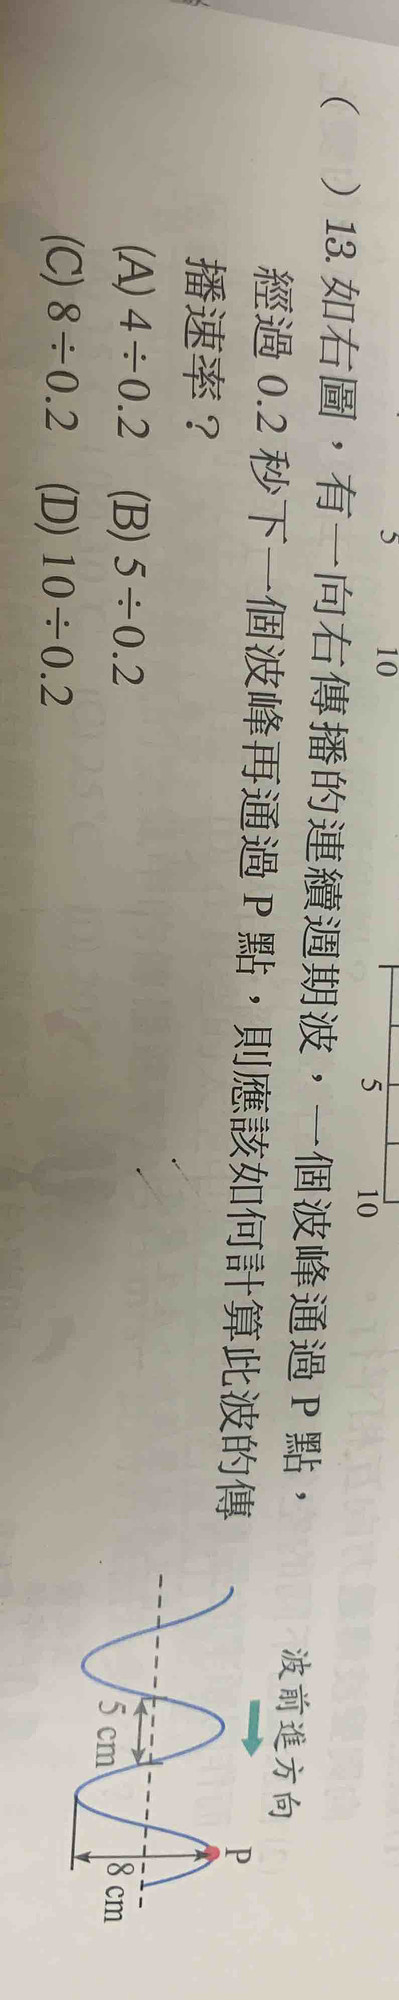 5 10
5 10
(  ) 13. 如右圖，有一向右傳播的連續週期波，一個波峰通過 P 點，
經過 0.2 秒下一個波峰再通過 P 點，則應該如何計算此波的傳
播速率？
(A) 4÷0.2 (B) 5÷0.2
(C) 8÷0.2 (D) 10÷0.2
波前進方向
P
5 cm
8 cm